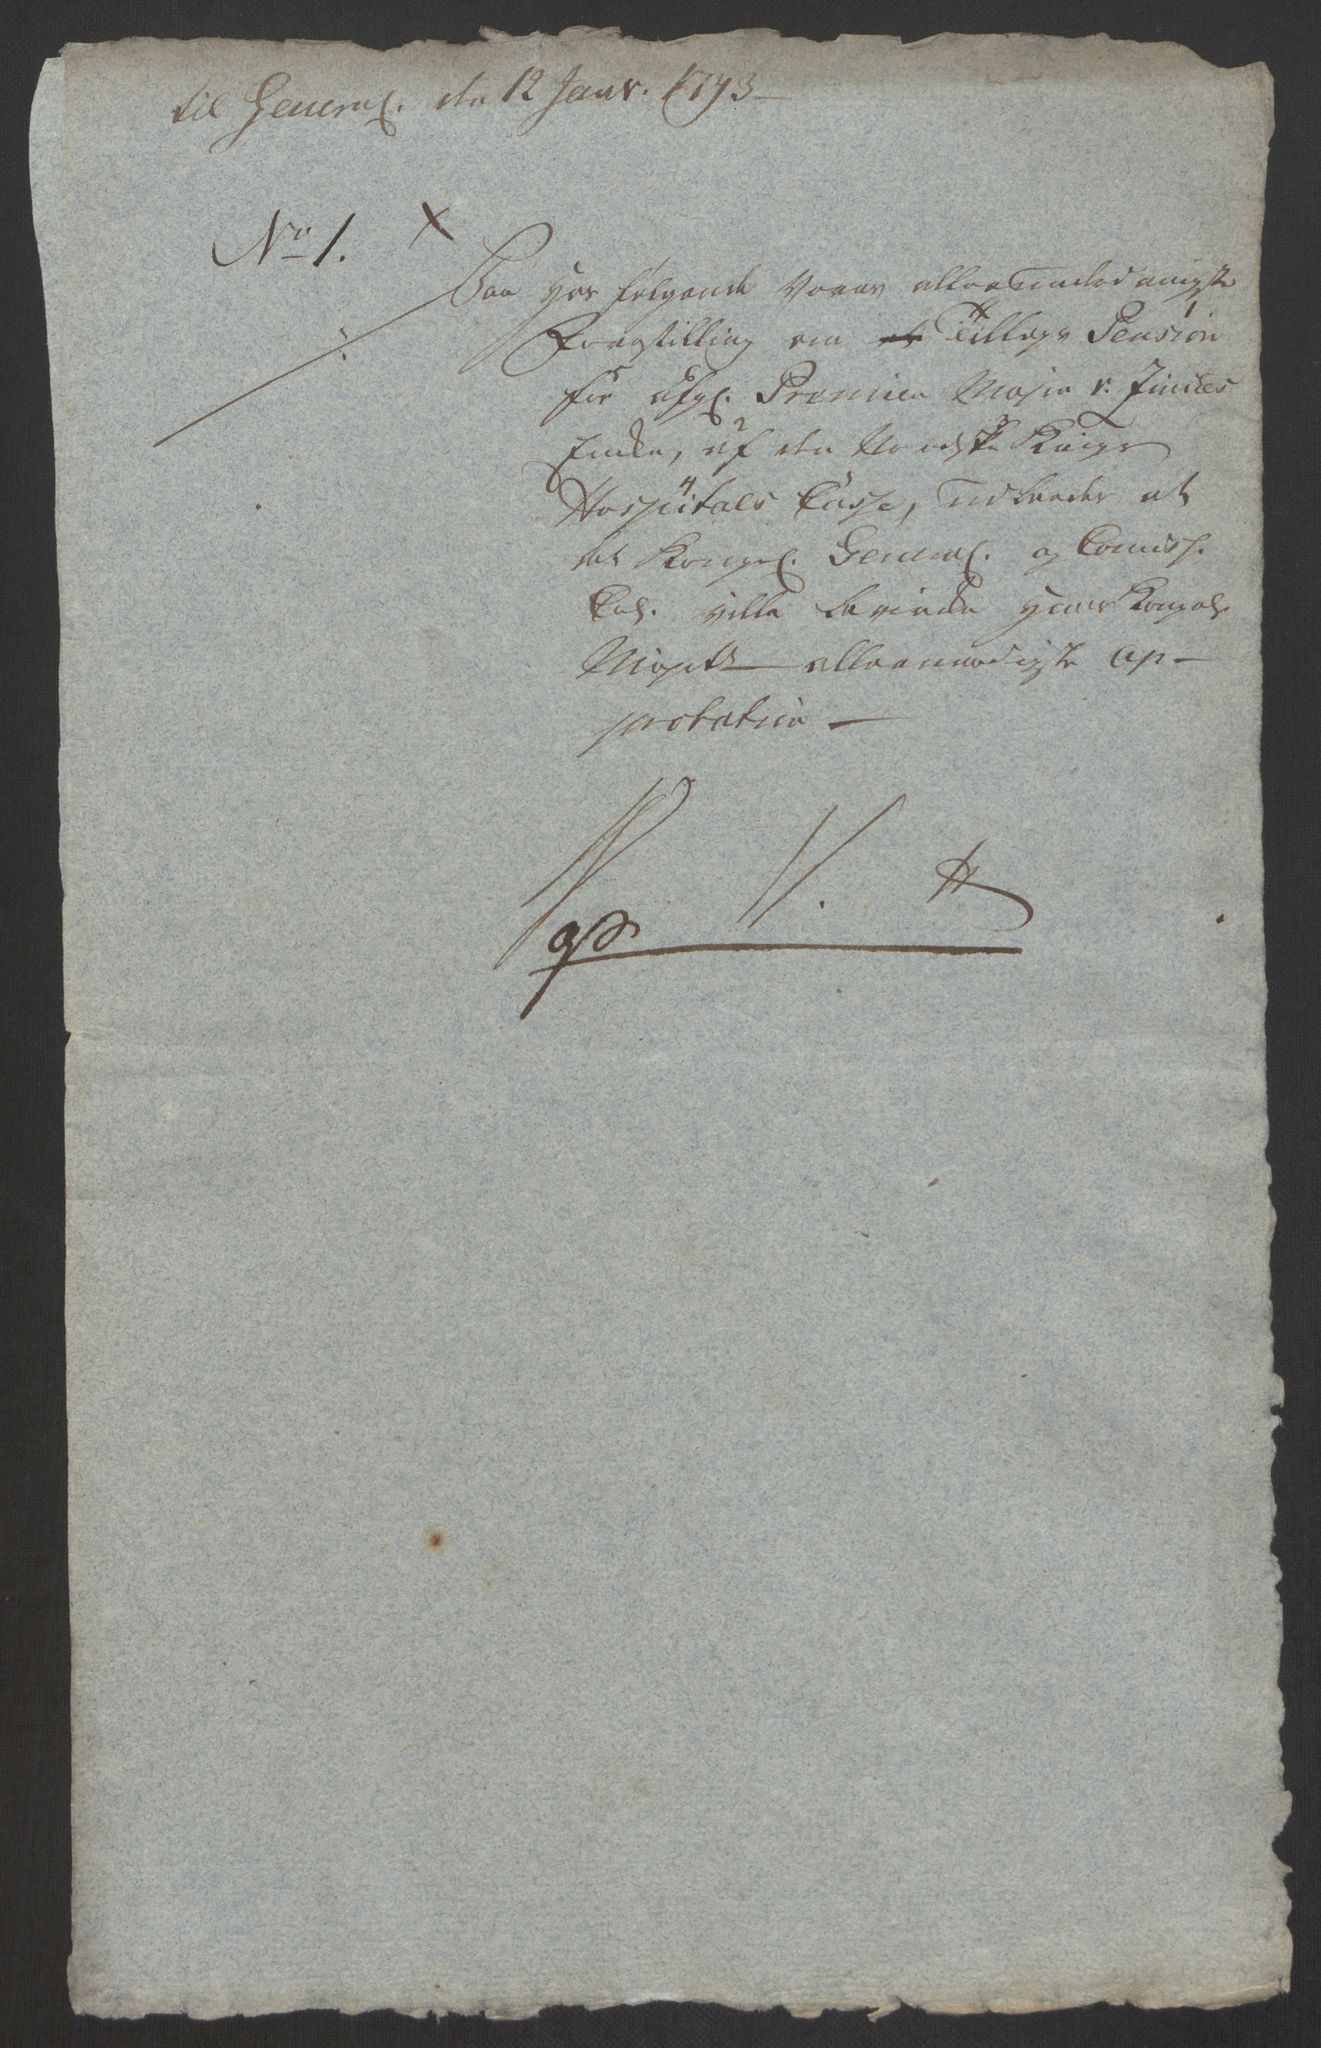 til General. den 12 Janv. 1793
No 1. X
Paa hos følgende Vores allerunderdanigste
Forestilling om et Tillægs Pension
for afg. Premier Major v.
Enke, af den Norske Krigs
Hospitals Casse, udbeedes at
det Kongel. General. og Comiss.
Coll. ville bevirke Hans Kongel.
Majts allernaadigste ap-
probation